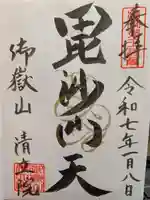 奉拝
令和七年一月八日
毘沙門天
御嶽山
清水院